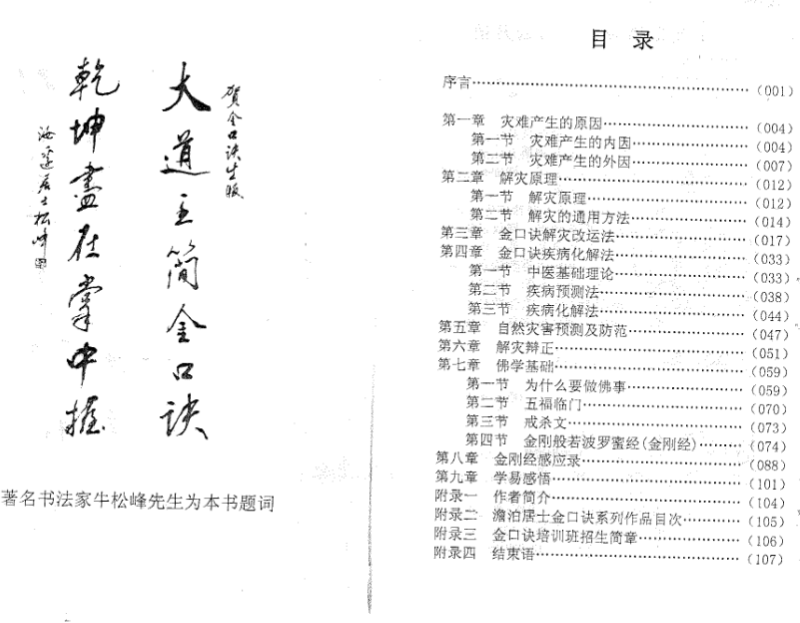 贺金口诀出版
大道至简金口诀
乾坤尽在掌中握
松峰
著名书法家牛松峰先生为本书题词
目 录
序言……(001)
第一章 灾难产生的原因……(004)
第一节 灾难产生的内因……(004)
第二节 灾难产生的外因……(007)
第二章 解灾原理……(012)
第一节 解灾原理……(012)
第二节 解灾的通用方法……(014)
第三章 金口诀解灾改运法……(017)
第四章 金口诀疾病化解法……(033)
第一节 中医基础理论……(033)
第二节 疾病预测法……(038)
第三节 疾病化解法……(044)
第五章 自然灾害预测及防范……(047)
第六章 解灾辩正……(051)
第七章 佛学基础……(059)
第一节 为什么要做佛事……(059)
第二节 五福临门……(070)
第三节 戒杀文……(073)
第四节 金刚般若波罗蜜经(金刚经)……(074)
第八章 金刚经感应录……(088)
第九章 学易感悟……(101)
附录一 作者简介……(104)
附录二 澹泊居士金口诀系列作品目次……(105)
附录三 金口诀培训班招生简章……(106)
附录四 结束语……(107)